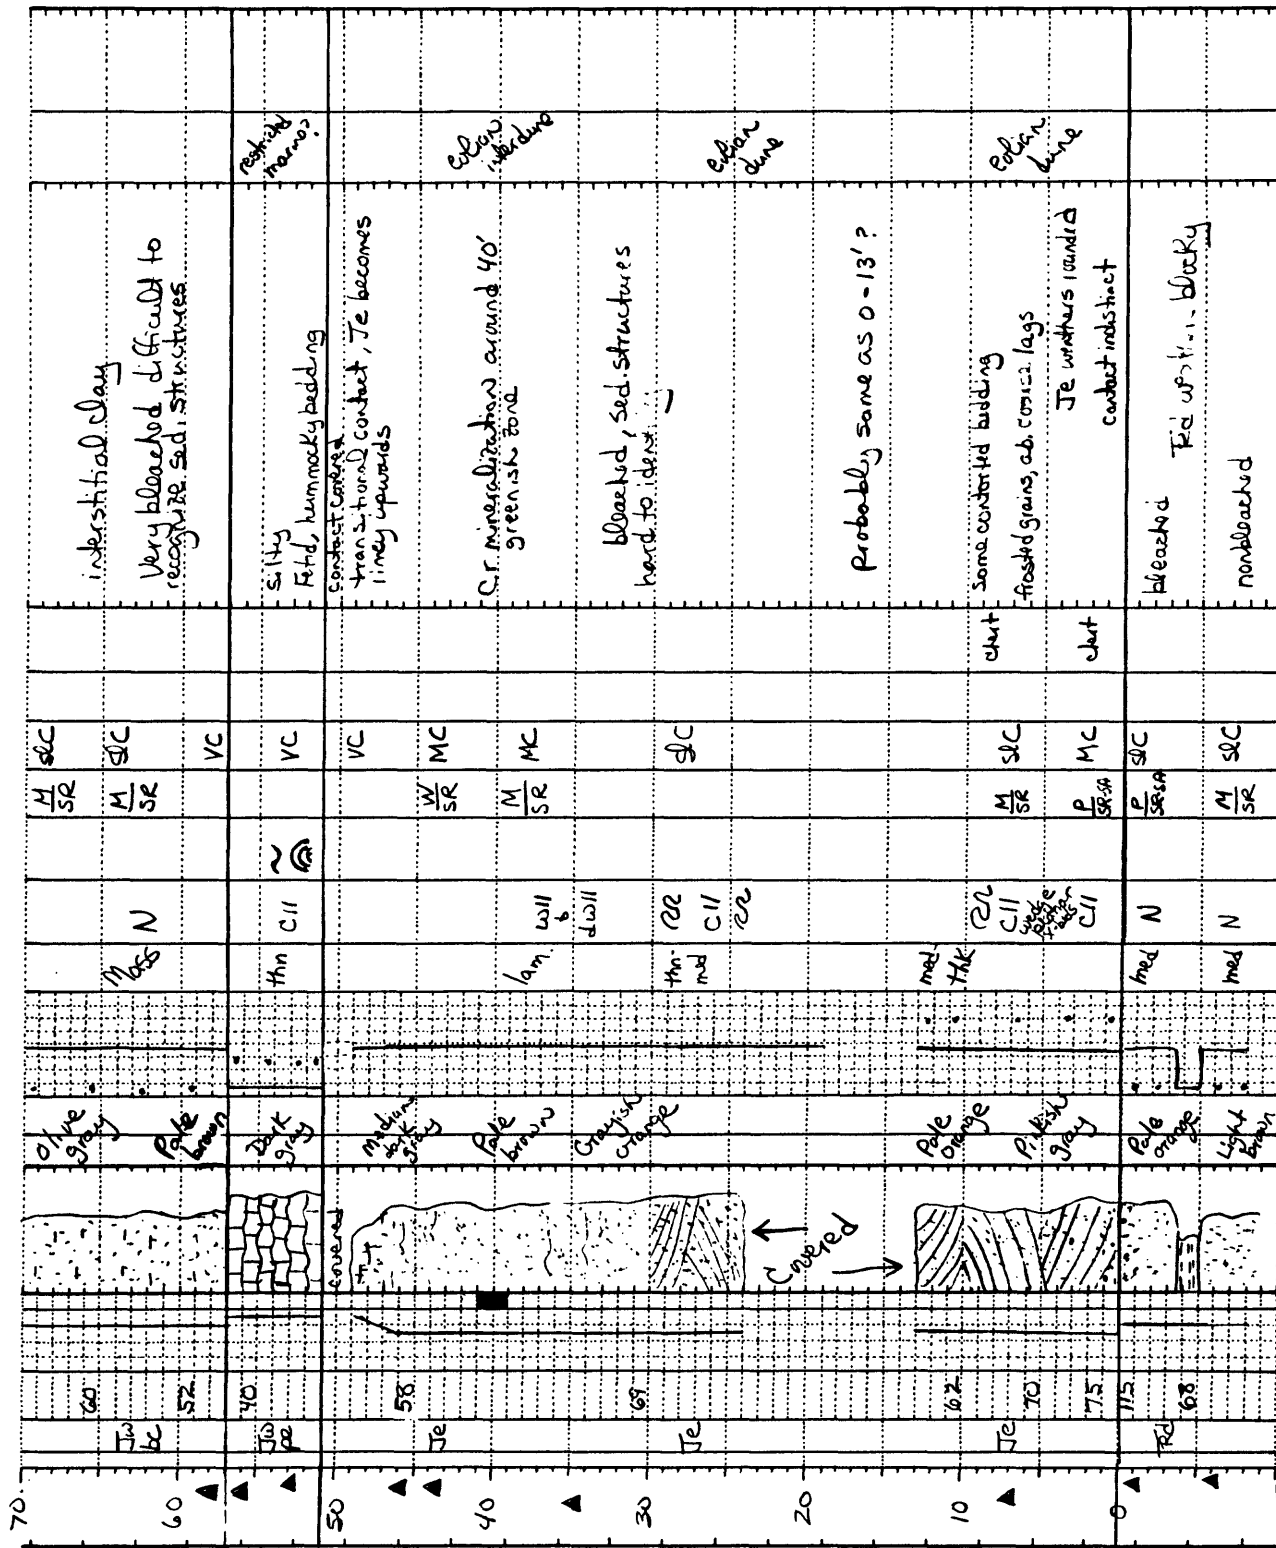 restricted
marine?
eolian
interdune
eolian
dune
eolian
dune
interstitial clay
Very bleached difficult to
recognize sed. structures
silty
Fetid, hummocky bedding
contact covered
transitional contact, Je becomes
limey upwards
Cr mineralization around 40'
greenish zone
bleached, sed. structures
hard to ident.
probably same as 0-13'?
some contorted bedding
frosted grains, ab. coarse lags
Je weathers rounded
contact indistinct
bleached
blocky
nonbleached
chert
chert
slC
slC
VC
VC
VC
MC
MC
slC
slC
MC
slC
slC
M
SR
M
SR
W
SR
M
SR
M
SR
P
SR-SA
P
SR-SA
M
SR
N
C11
w11
&
dw11
C11
C11
wedge
planar
x-beds
C11
N
N
Mass
thn
lam.
thn-
med
med-
thk
med
med
Olive
gray
Pale
brown
Dark
gray
Medium
dark
gray
Pale
brown
Grayish
orange
Pale
orange
Pinkish
gray
Pale
orange
Light
brown
covered
Covered
60
52
40
58
69
62
70
75
115
68
Jw
bc
Jw
pe
Je
Je
Je
70
60
50
40
30
20
10
0